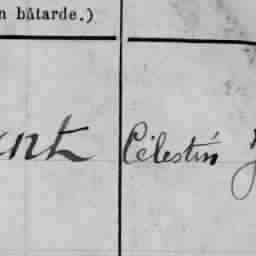 n bâtarde.)
ant Célestin